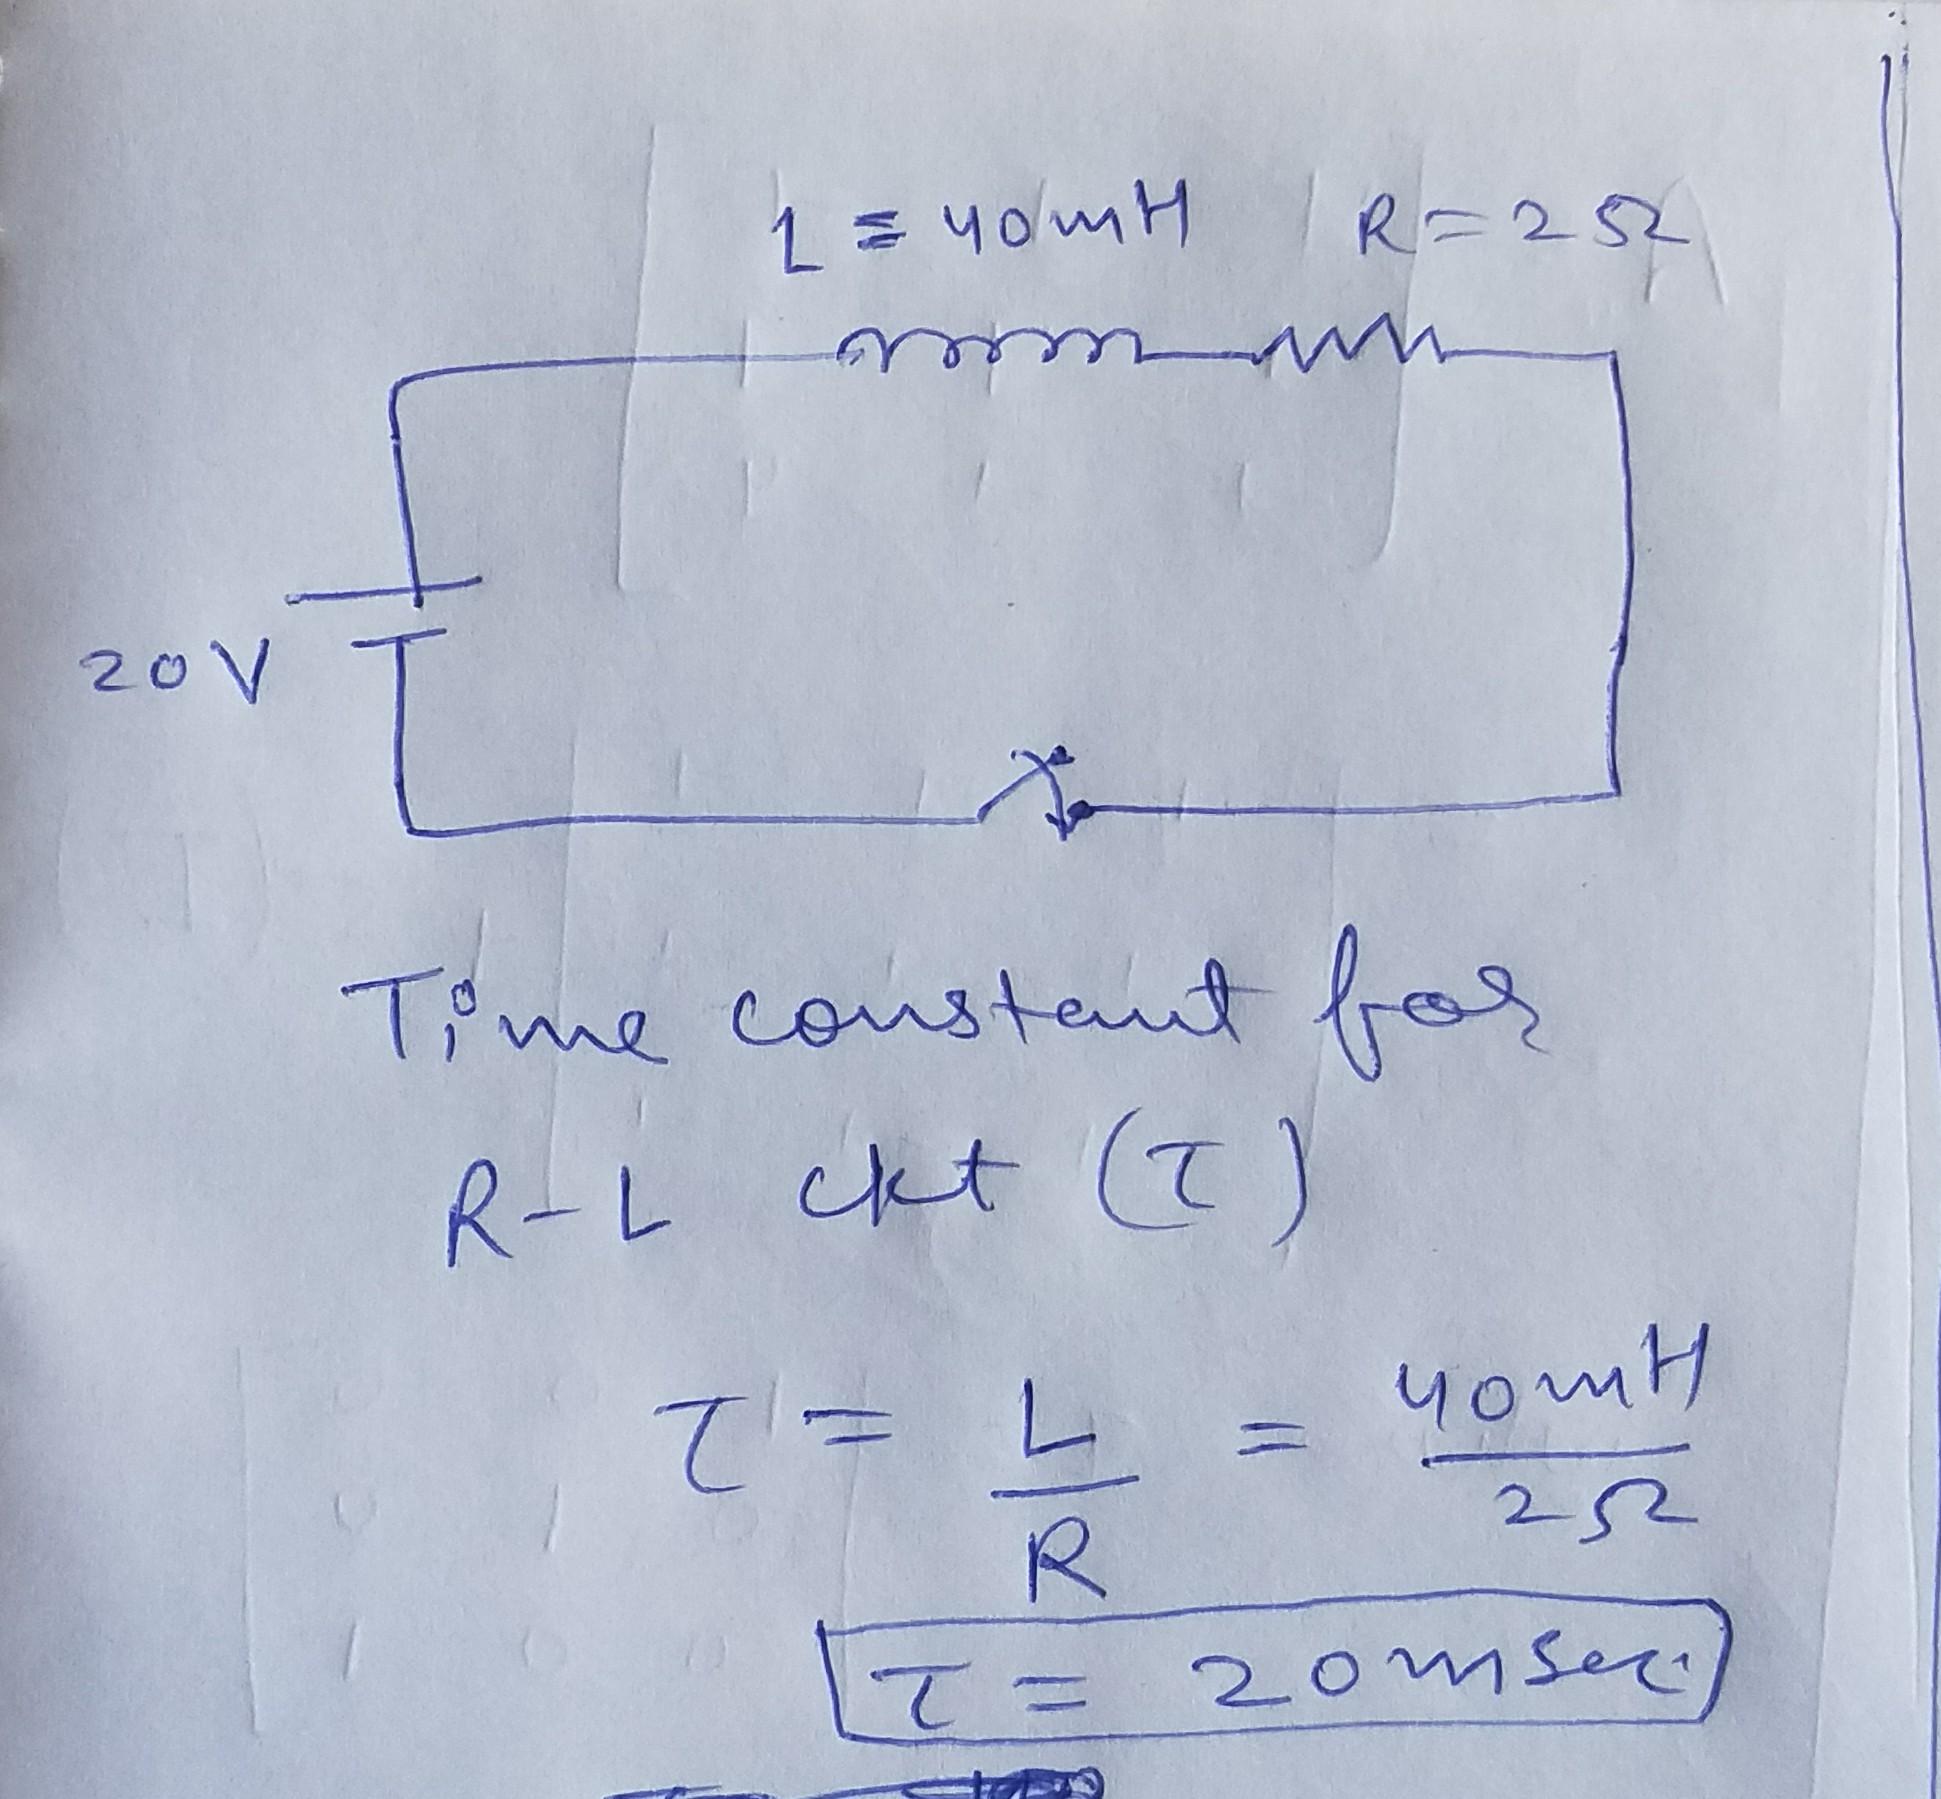 L = 40mH R = 2Ω
20V
Time constant for
R-L ckt (τ)
τ = L/R = 40mH/2Ω
τ = 20msec